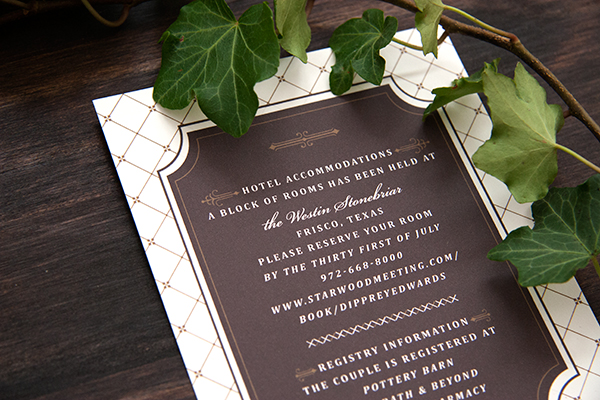 HOTEL ACCOMMODATIONS
A BLOCK OF ROOMS HAS BEEN HELD AT
the Westin Stonebriar
FRISCO, TEXAS
PLEASE RESERVE YOUR ROOM
BY THE THIRTY FIRST OF JULY
972-668-8000
WWW.STARWOODMEETING.COM/
BOOK/DIPPREYEDWARDS
REGISTRY INFORMATION
THE COUPLE IS REGISTERED AT
POTTERY BARN
& BEYOND